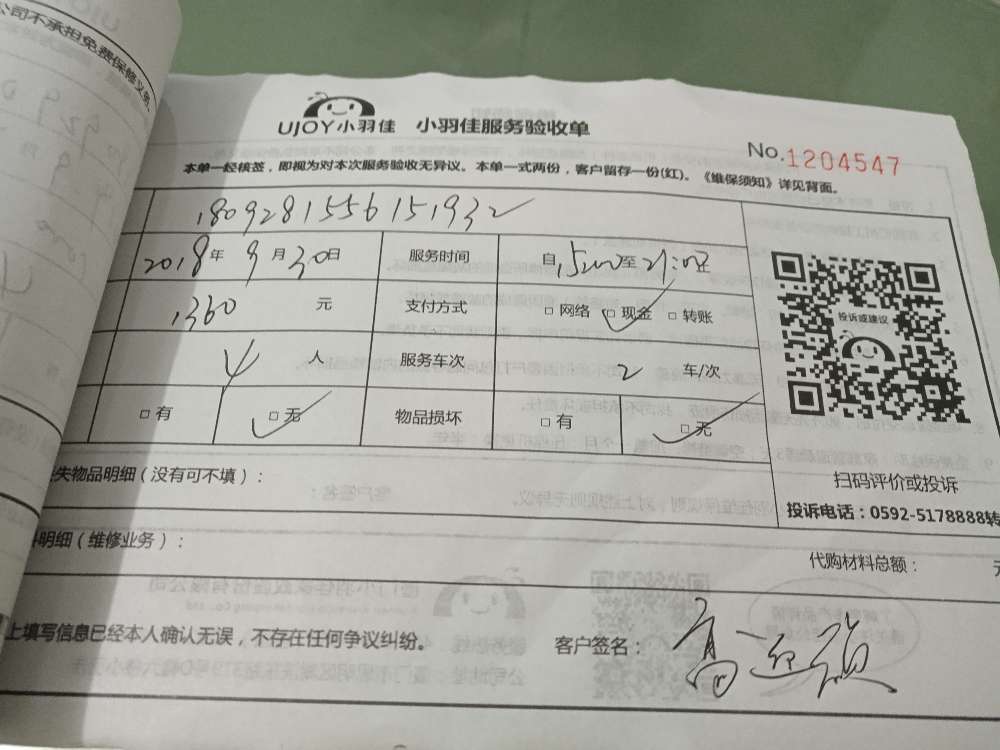 公司不承担免费保修义务。
UJOY小羽佳 小羽佳服务验收单
No.1204547
本单一经核签，即视为对本次服务验收无异议。本单一式两份，客户留存一份(红)。《维保须知》详见背面。
1809281556151932
2018年9月30日 服务时间 自15:00至21:02
1360元 支付方式 □网络 □现金 □转账
4人 服务车次 2车/次
□有 □无 物品损坏 □有 □无
投诉或建议
扫码评价或投诉
投诉电话：0592-5178888转
失物品明细（没有可不填）：
明细（维修业务）：
代购材料总额： 元
上填写信息已经本人确认无误，不存在任何争议纠纷。
客户签名：